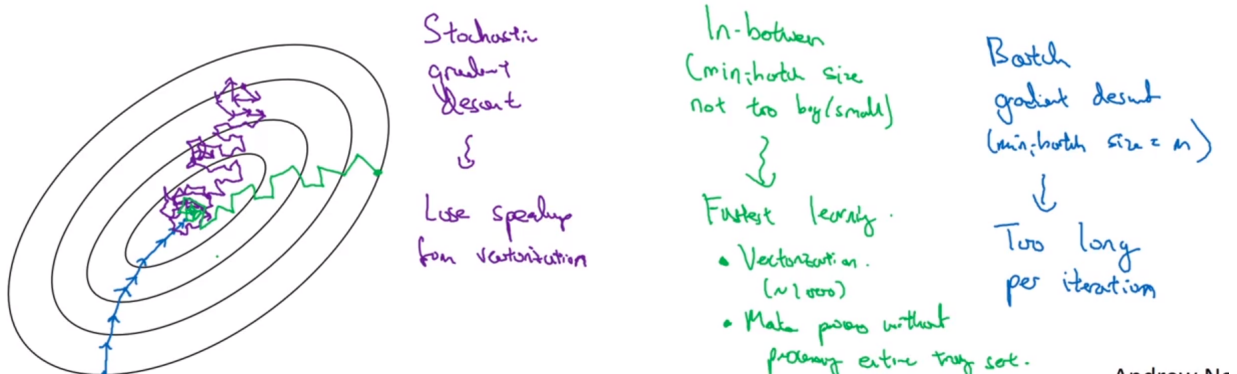 Stochastic
gradient
descent
Lose speedup
from vectorization
In-between
(mini-batch size
not too big/small)
Fastest learning.
• Vectorization.
(~1000)
• Make progress without
processing entire training set.
Batch
gradient descent
(mini-batch size = m)
Too long
per iteration
Andrew